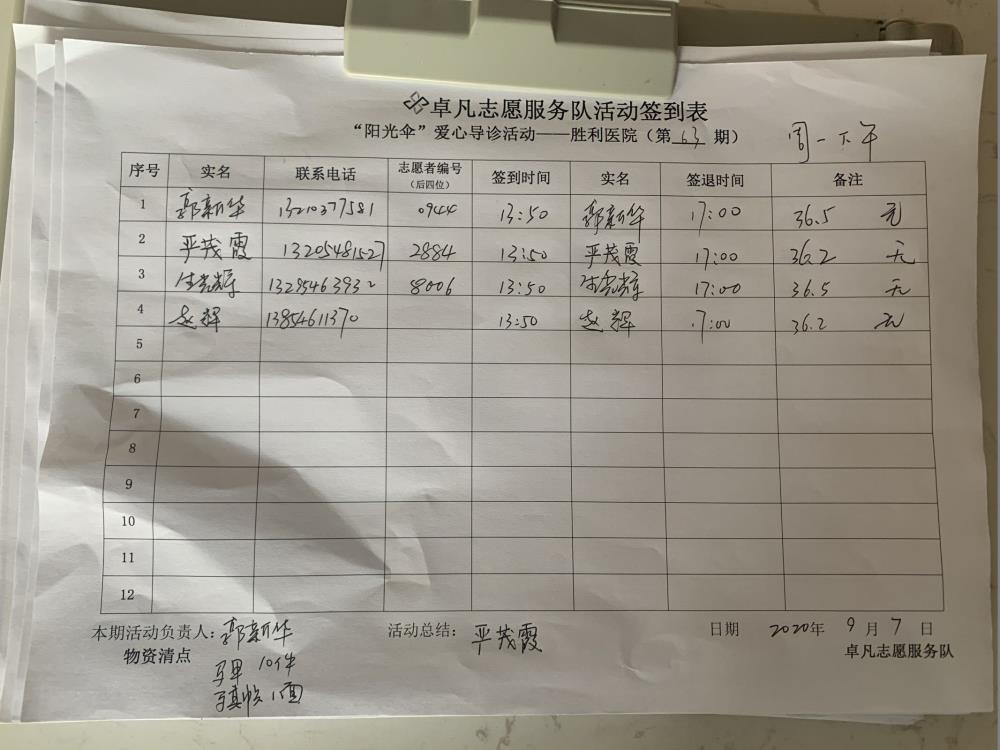 卓凡志愿服务队活动签到表
“阳光伞”爱心导诊活动——胜利医院（第 63 期） 周一下午
序号 实名 联系电话 志愿者编号（后四位） 签到时间 实名 签退时间 备注
1 郭新华 13210377581 0944 13:50 郭新华 17:00 36.5 无
2 严茂霞 13205481527 2884 13:50 严茂霞 17:00 36.2 无
3 13295463932 8006 13:50 17:00 36.5 无
4 赵辉 13854611370 13:50 赵辉 17:00 36.2 无
5
6
7
8
9
10
11
12
本期活动负责人：郭新华 活动总结：严茂霞 日期 2020年 9月 7日
物资清点 卓凡志愿服务队
马甲 10件
1面